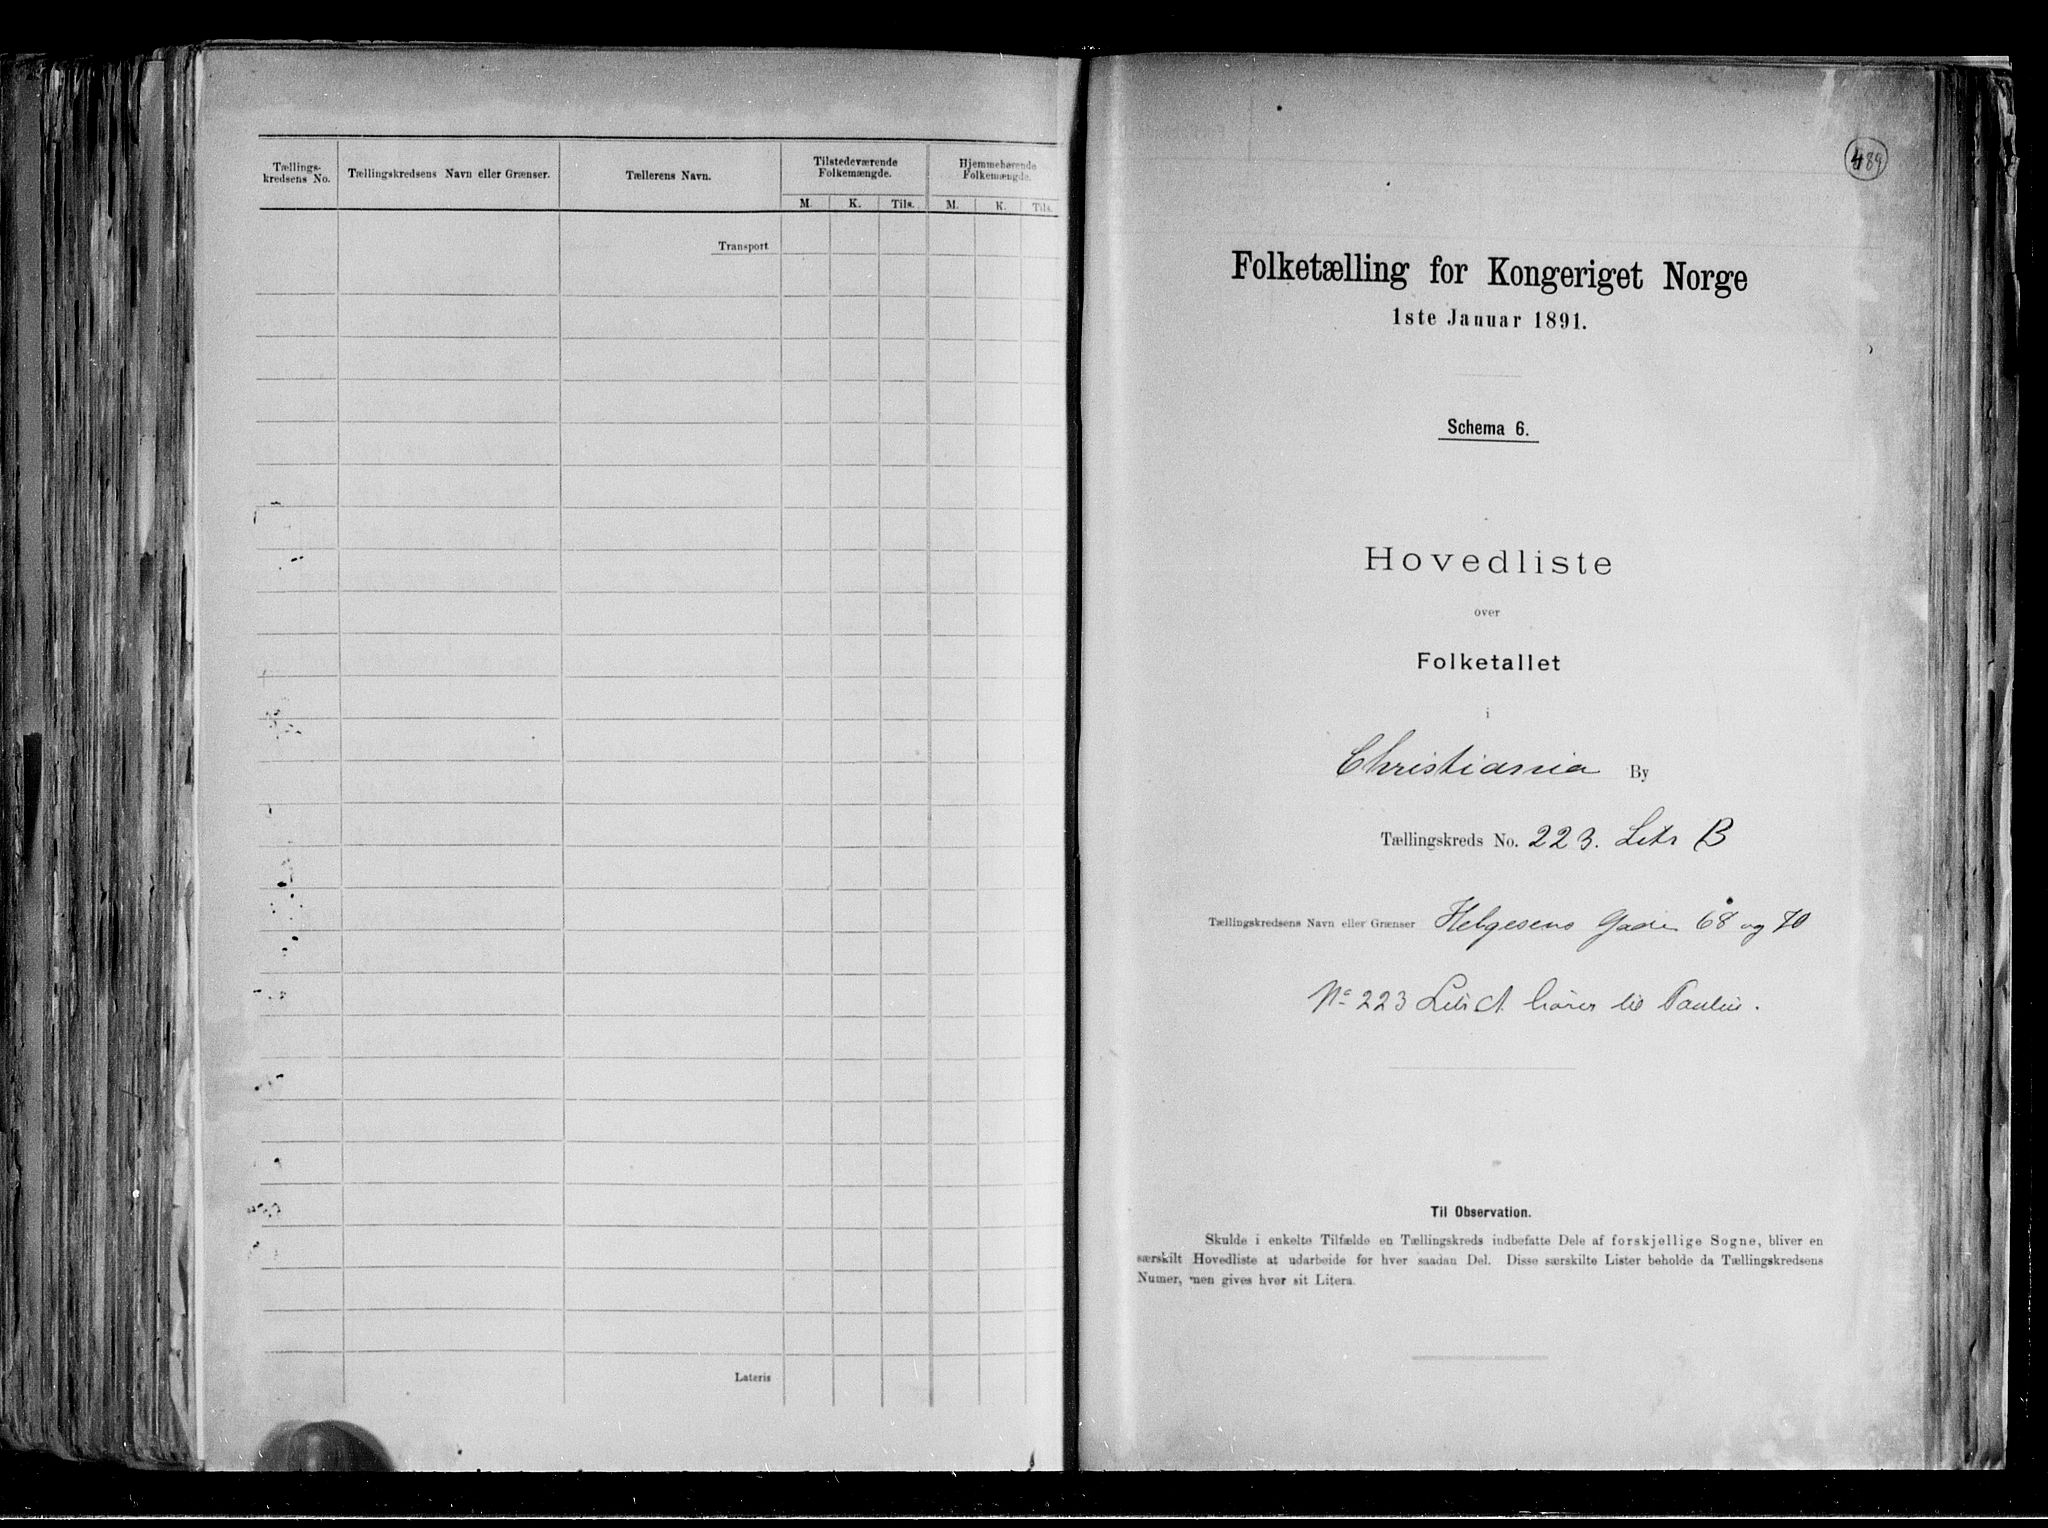 Tællings-
kredsens No.
Tællingskredsens Navn eller Grænser.
Tællerens Navn.
Tilstedeværende
Folkemængde.
Hjemmehørende
Folkemængde.
M. K. Tils. M. K. Tils.
Transport
Lateris
489
Folketælling for Kongeriget Norge
1ste Januar 1891.
Schema 6.
Hovedliste
over
Folketallet
i
Christiania By
Tællingskreds No. 223. Litr B
Tællingskredsens Navn eller Grænser Helgesens Gade 68 og 70
No 223 Litr A hører til Paulus.
Til Observation.
Skulde i enkelte Tilfælde en Tællingskreds indbefatte Dele af forskjellige Sogne, bliver en
særskilt Hovedliste at udarbeide for hver saadan Del. Disse særskilte Lister beholde da Tællingskredsens
Numer, men gives hver sit Litera.